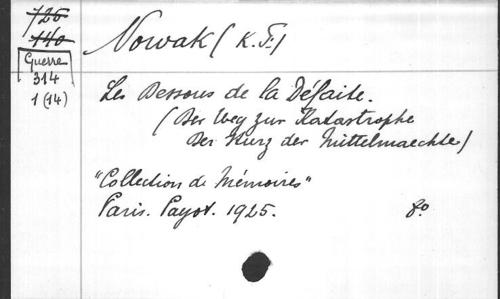 726
140
Guerre
314
1 (14)
Nowak (K. F.)
Les Dessous de la Défaite.
(Der Weg zur Katastrophe
Der Sturz der Mittelmaechte)
"Collection de Mémoires"
Paris. Payot. 1925. 8º